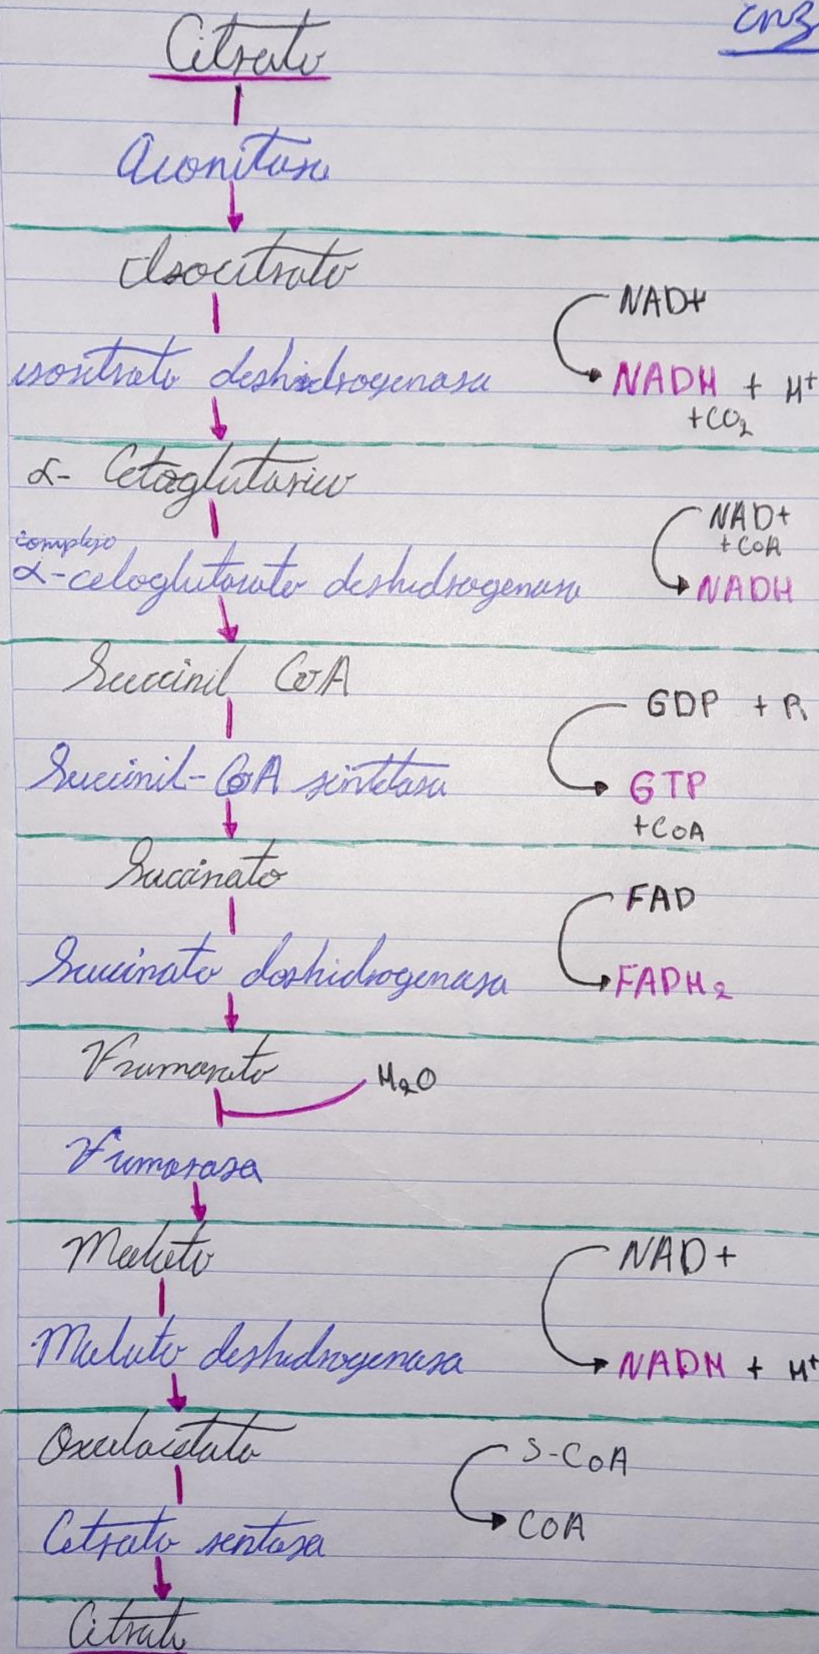 enz
Citrato
Aconitasa
Isocitrato
NAD+
isocitrato deshidrogenasa
NADH + H+
+CO2
α- Cetoglutarico
NAD+
+CoA
complejo
α-cetoglutarato deshidrogenasa
NADH
Succinil CoA
GDP + Pi
Succinil-CoA sintetasa
GTP
+CoA
Succinato
FAD
Succinato deshidrogenasa
FADH2
Frumarato
H2O
Fumarasa
Malato
NAD+
Malato deshidrogenasa
NADH + H+
Oxalacetato
S-CoA
Citrato sentasa
COA
Citrato